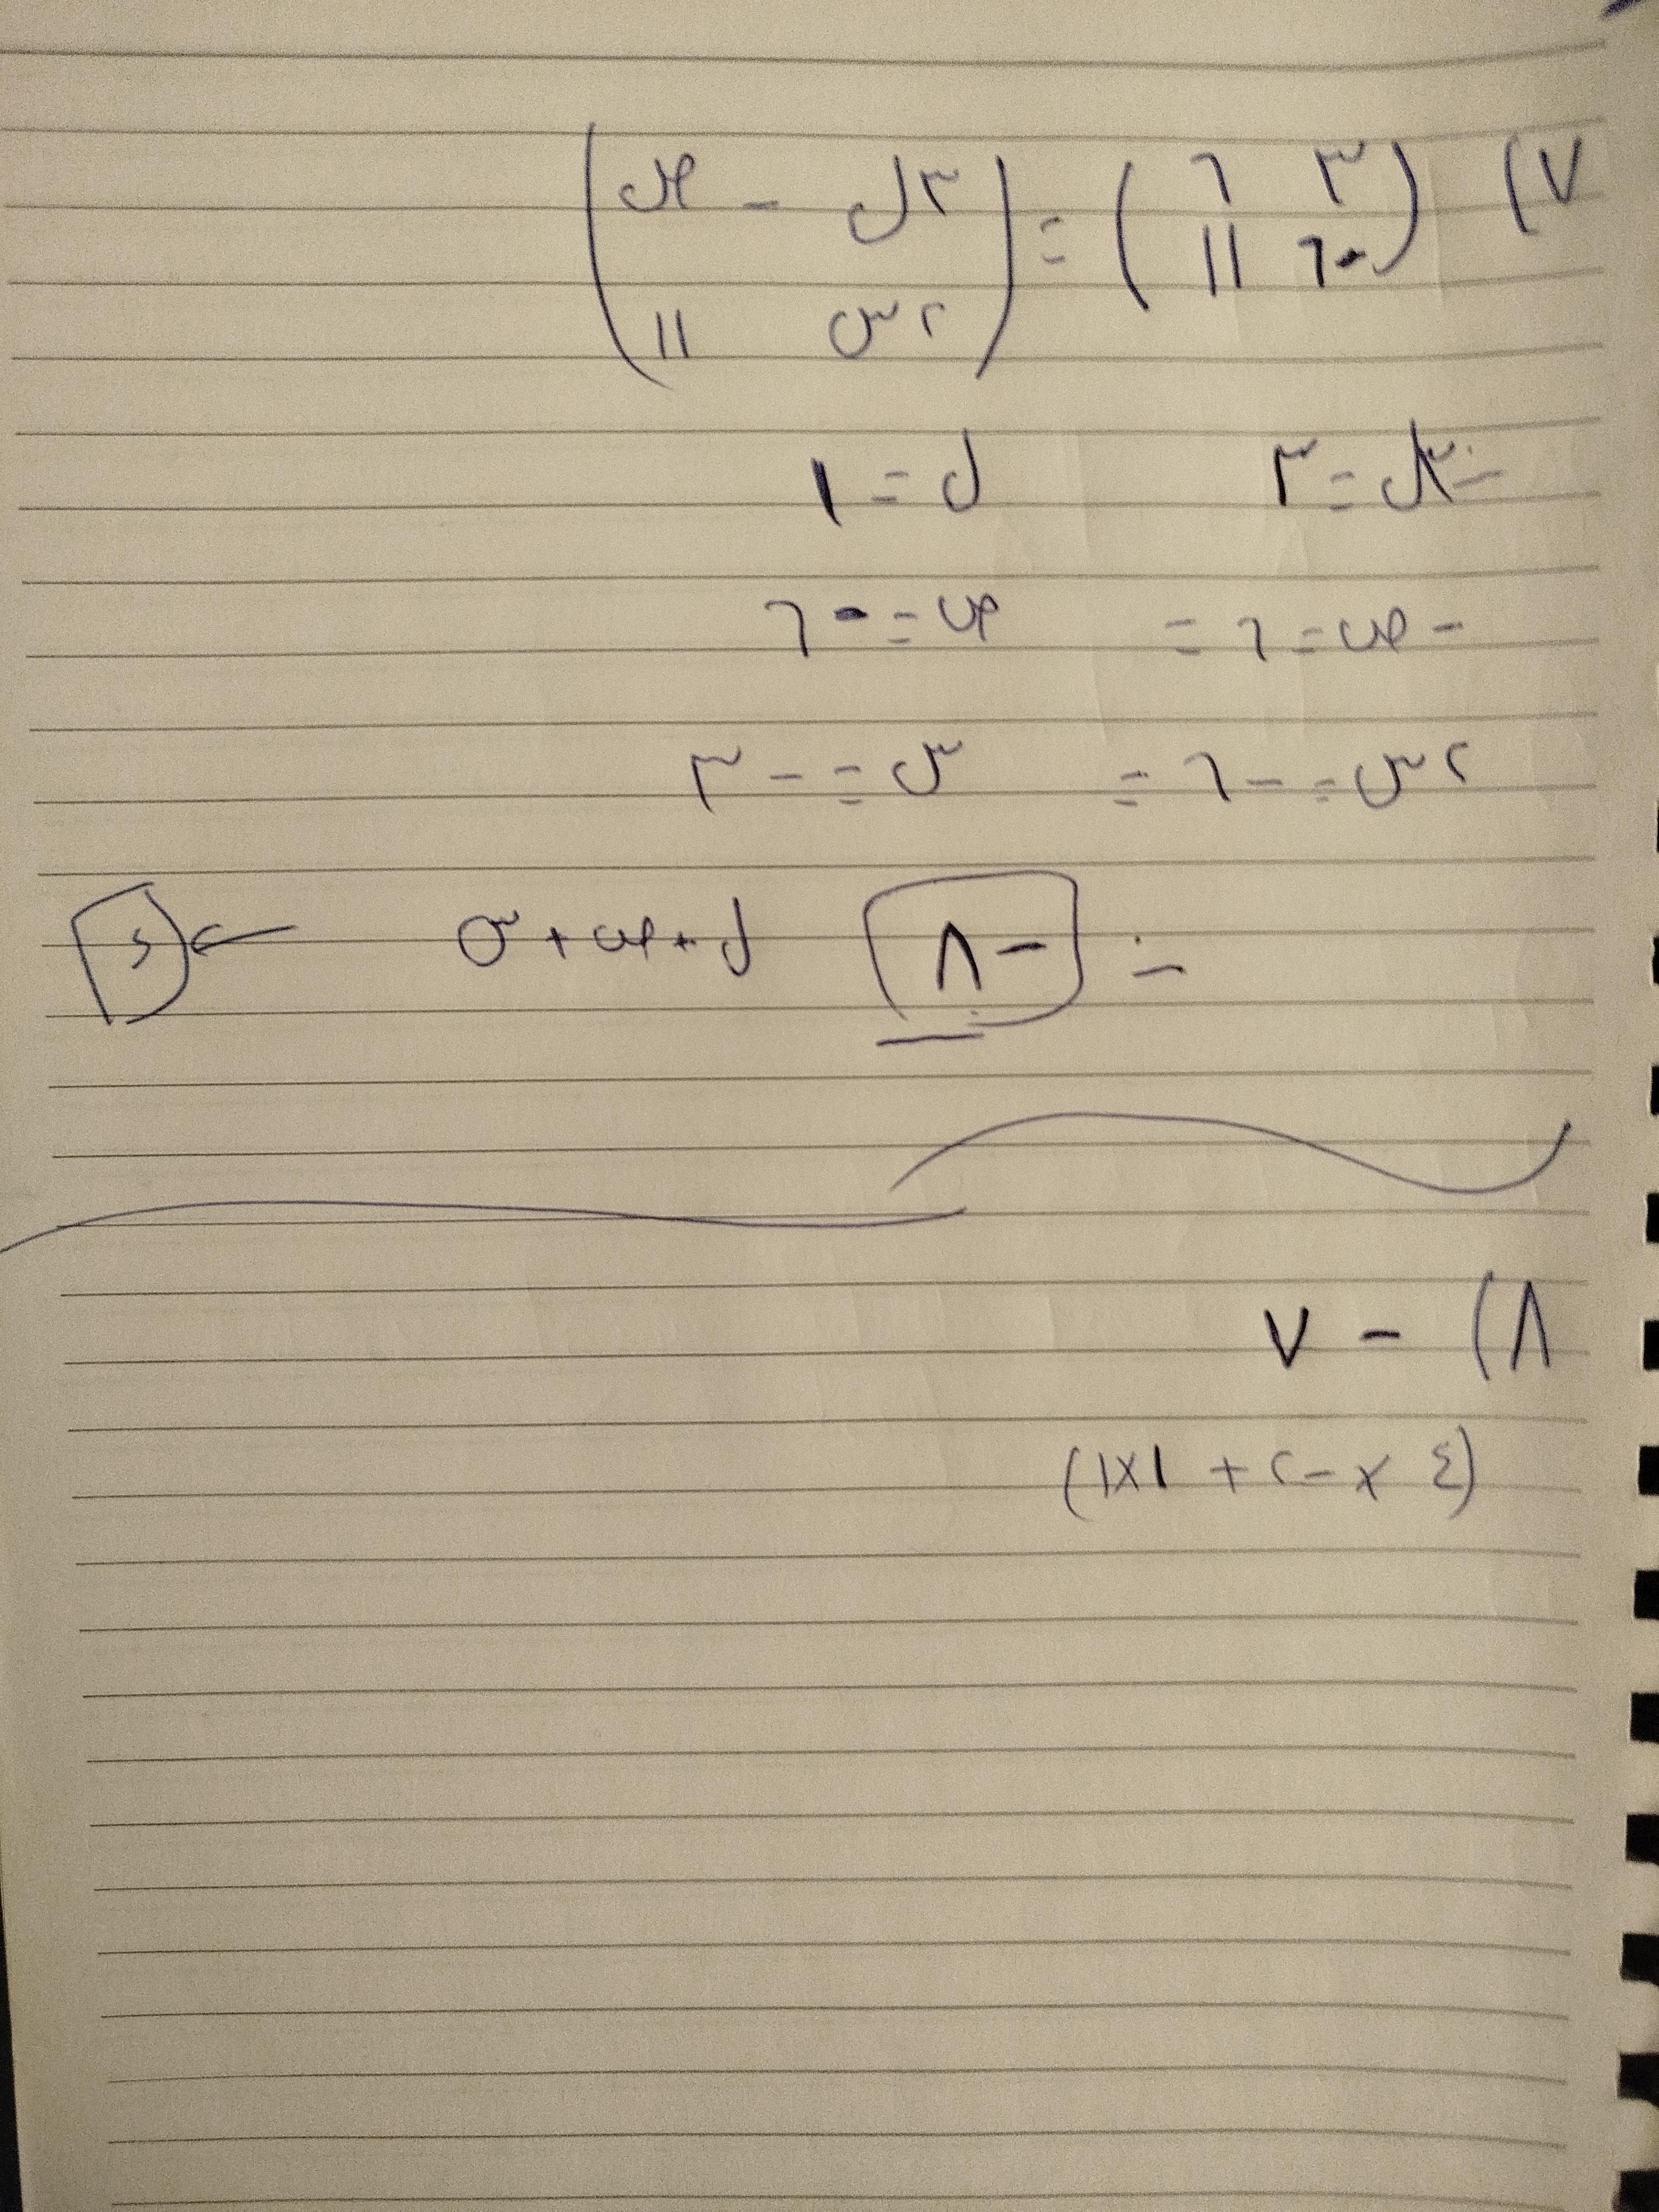 ٧) (٣ ٦ = (٣ل - ص
-٦ ١١) ٢س ١١)
∴ ٣ل = ٣ ل = ١
- ص = ٦ = ص = -٦
٢س = -٦ = س = -٣
∴ -٨ ل + ص + س ← د
٨) - ٧
(٤ × -٢ + ١×١)